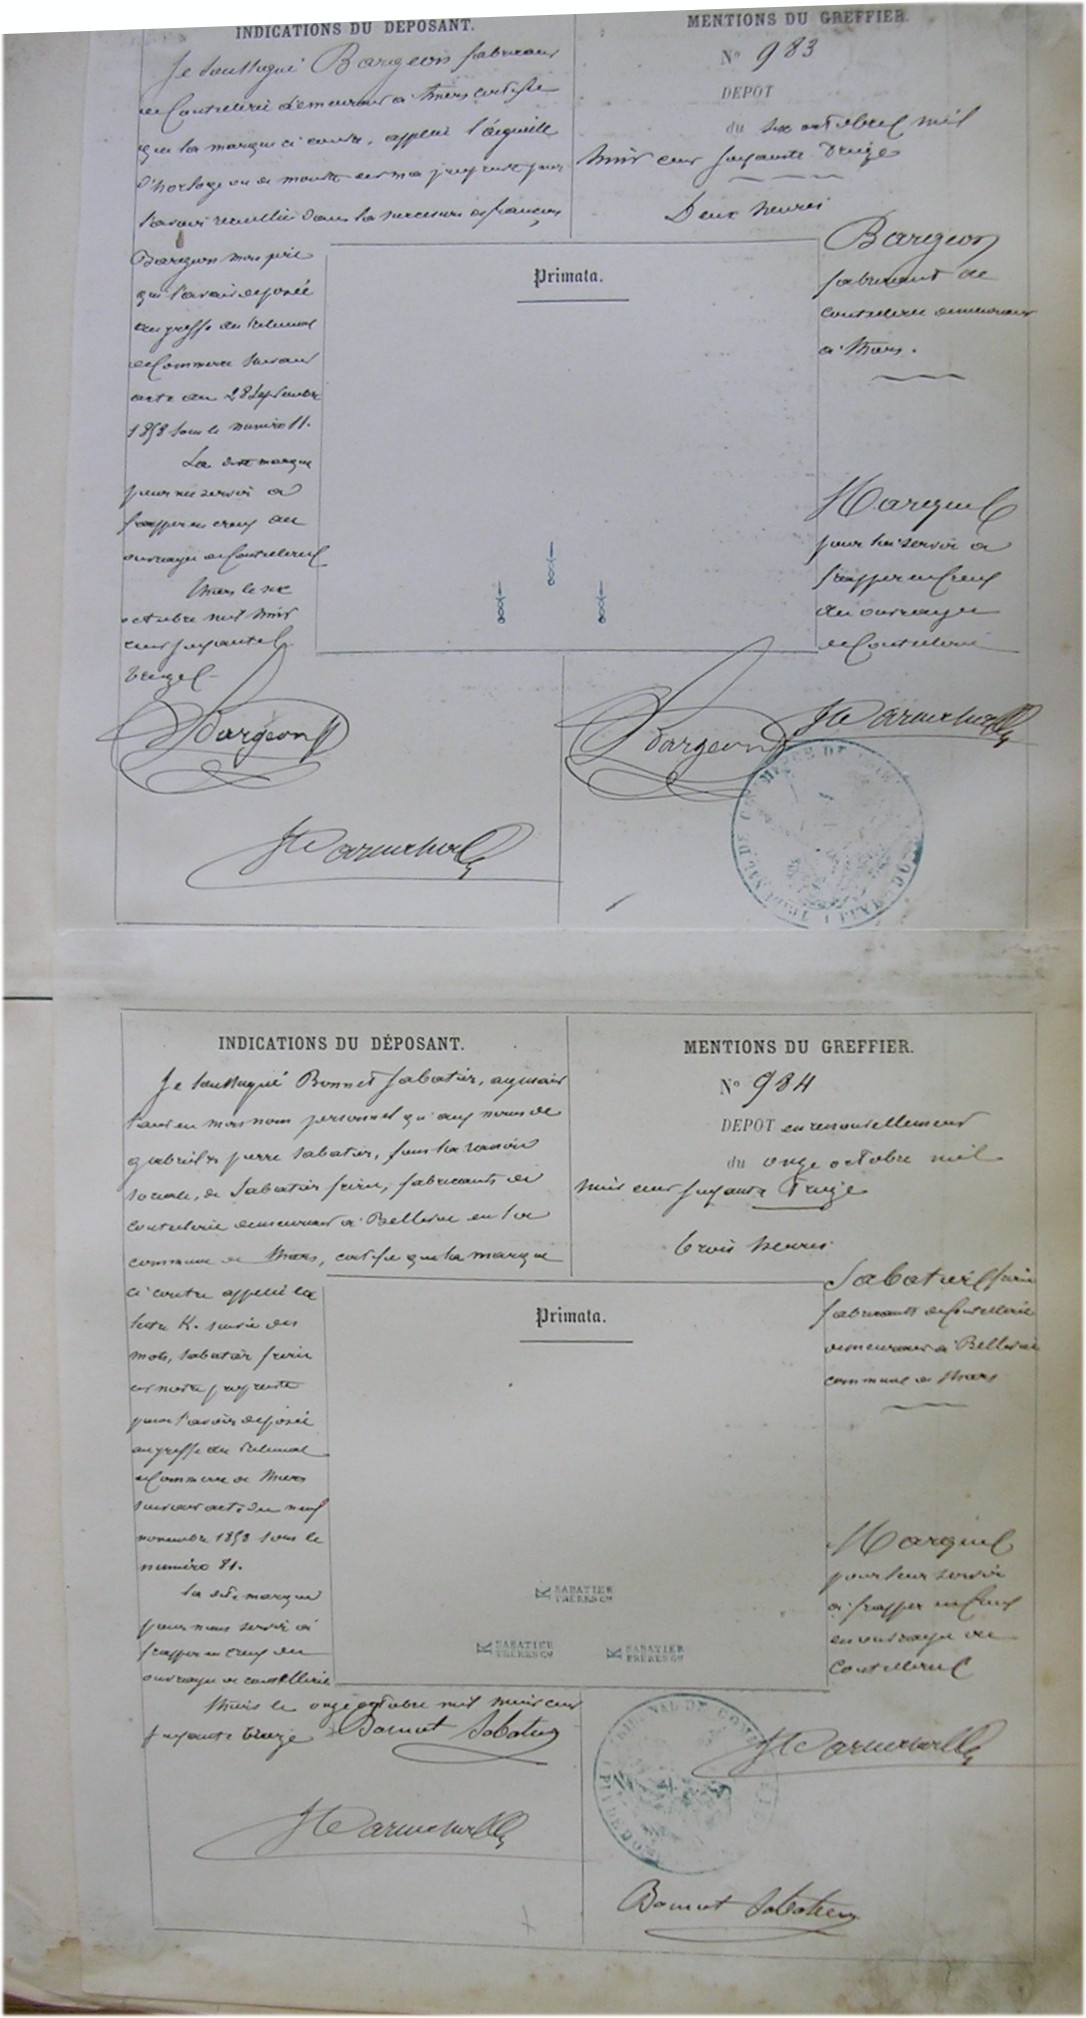 INDICATIONS DU DÉPOSANT.
Je soussigné Bargeon fabricant
de Coutellerie demeurant à Thiers certifie
que la marque ci contre, appelée l'aiguille
d'horloge ou de montre est ma propriété pour
l'avoir recueillie dans la succession de françois
Bargeon mon père
qui l'avait déposée
au greffe du tribunal
de Commerce suivant
acte du 28 Septembre
1858 sous le numéro 11.
La dite marque
pour me servir à
frapper en creux au
ouvrages de Coutellerie
Thiers le six
octobre mil huit
cent soixante
treize
Bargeon
MENTIONS DU GREFFIER.
N° 983
DEPOT
du six octobre mil
huit cent soixante treize
Deux heures
Primata.
Bargeon
fabricant de
coutellerie demeurant
à Thiers.
Marque
pour lui servir à
frapper en Creux
au ouvrages
de Coutellerie
Bargeon
INDICATIONS DU DÉPOSANT.
Je soussigné Bonnet Sabatier, agissant
tant en mon nom personnel qu'aux noms de
gabriel & pierre Sabatier, sous la raison
sociale, de Sabatier frères, fabricants de
coutellerie demeurant à Bellevue en la
commune de Thiers, certifie que la marque
ci contre appelée la
lettre K. suivie des
mots, Sabatier frères
est notre propriété
pour l'avoir déposée
au greffe du tribunal
de Commerce de Thiers
suivant acte du neuf
novembre 1858 sous le
numéro 81.
la dite marque
pour nous servir à
frapper en creux au
ouvrages de coutellerie
Thiers le onze octobre mil huit cent
soixante treize Bonnet Sabatier
MENTIONS DU GREFFIER.
N° 984
DEPOT en renouvellement
du onze octobre mil
huit cent soixante treize
trois heures
Primata.
Sabatier frères
fabricants de Coutellerie
demeurant à Bellevue
commune de Thiers
Marque
pour leur servir
à frapper en Creux
en ouvrages de
Coutellerie
K SABATIER
FRÈRES Cie
K SABATIER
FRÈRES Cie
K SABATIER
FRÈRES Cie
Bonnet Sabatier